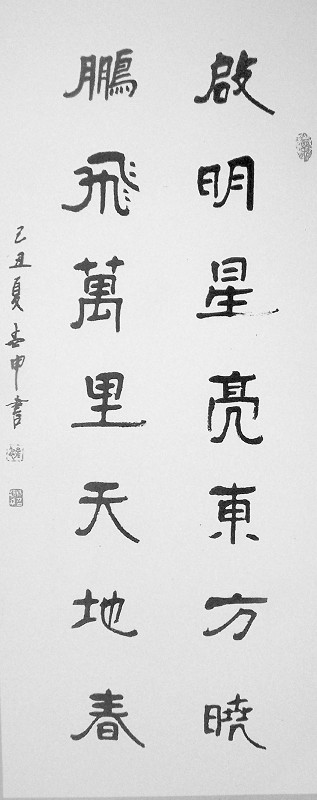 啟明星亮東方曉
鵬飛萬里天地春
己丑夏春申書